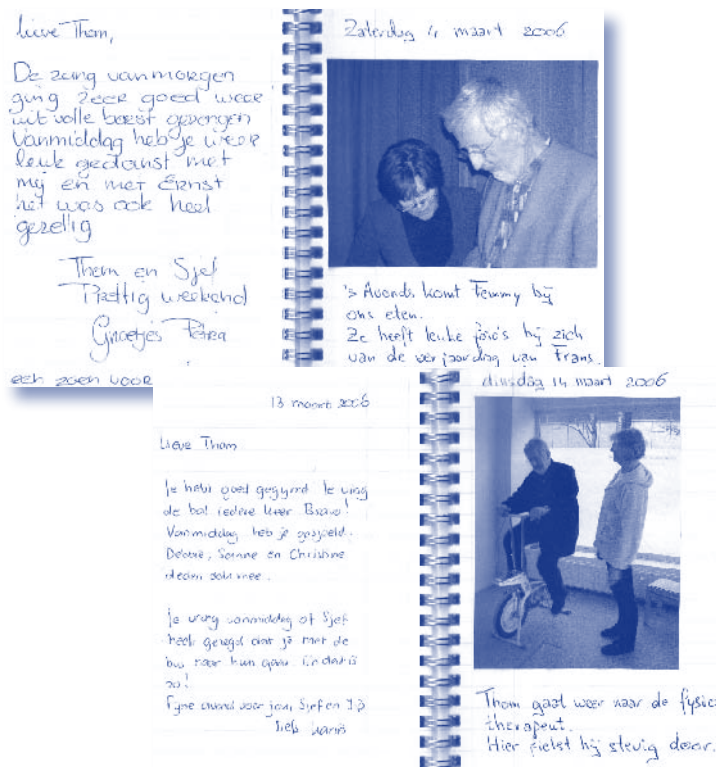 Lieve Thom,
De zang vanmorgen
ging zeer goed weer
uit volle borst gezongen
Vanmiddag heb je weer
leuk gedanst met
mij en met Ernst
het was ook heel
gezellig
Thom en Sjef
Prettig weekend
Groetjes Petra
een zoen voor
Zaterdag 4 maart 2006
's Avonds komt Femmy bij
ons eten.
Ze heeft leuke foto's bij zich
van de verjaardag van Frans.
13 maart 2006
Lieve Thom
Je hebt goed gegymd Je ving
de bal iedere keer Bravo!
Vanmiddag heb je gesjoeld.
Debbie, Sanne en Christine
deden ook mee.
Je vroeg vanmiddag of Sjef
heeft geregeld dat je met de
bus naar huis gaat. En dat is
zo!
Fijne avond voor jou, Sjef en
liefs
dinsdag 14 maart 2006
Thom gaat weer naar de fysio
therapeut.
Hier fietst hij stevig door.